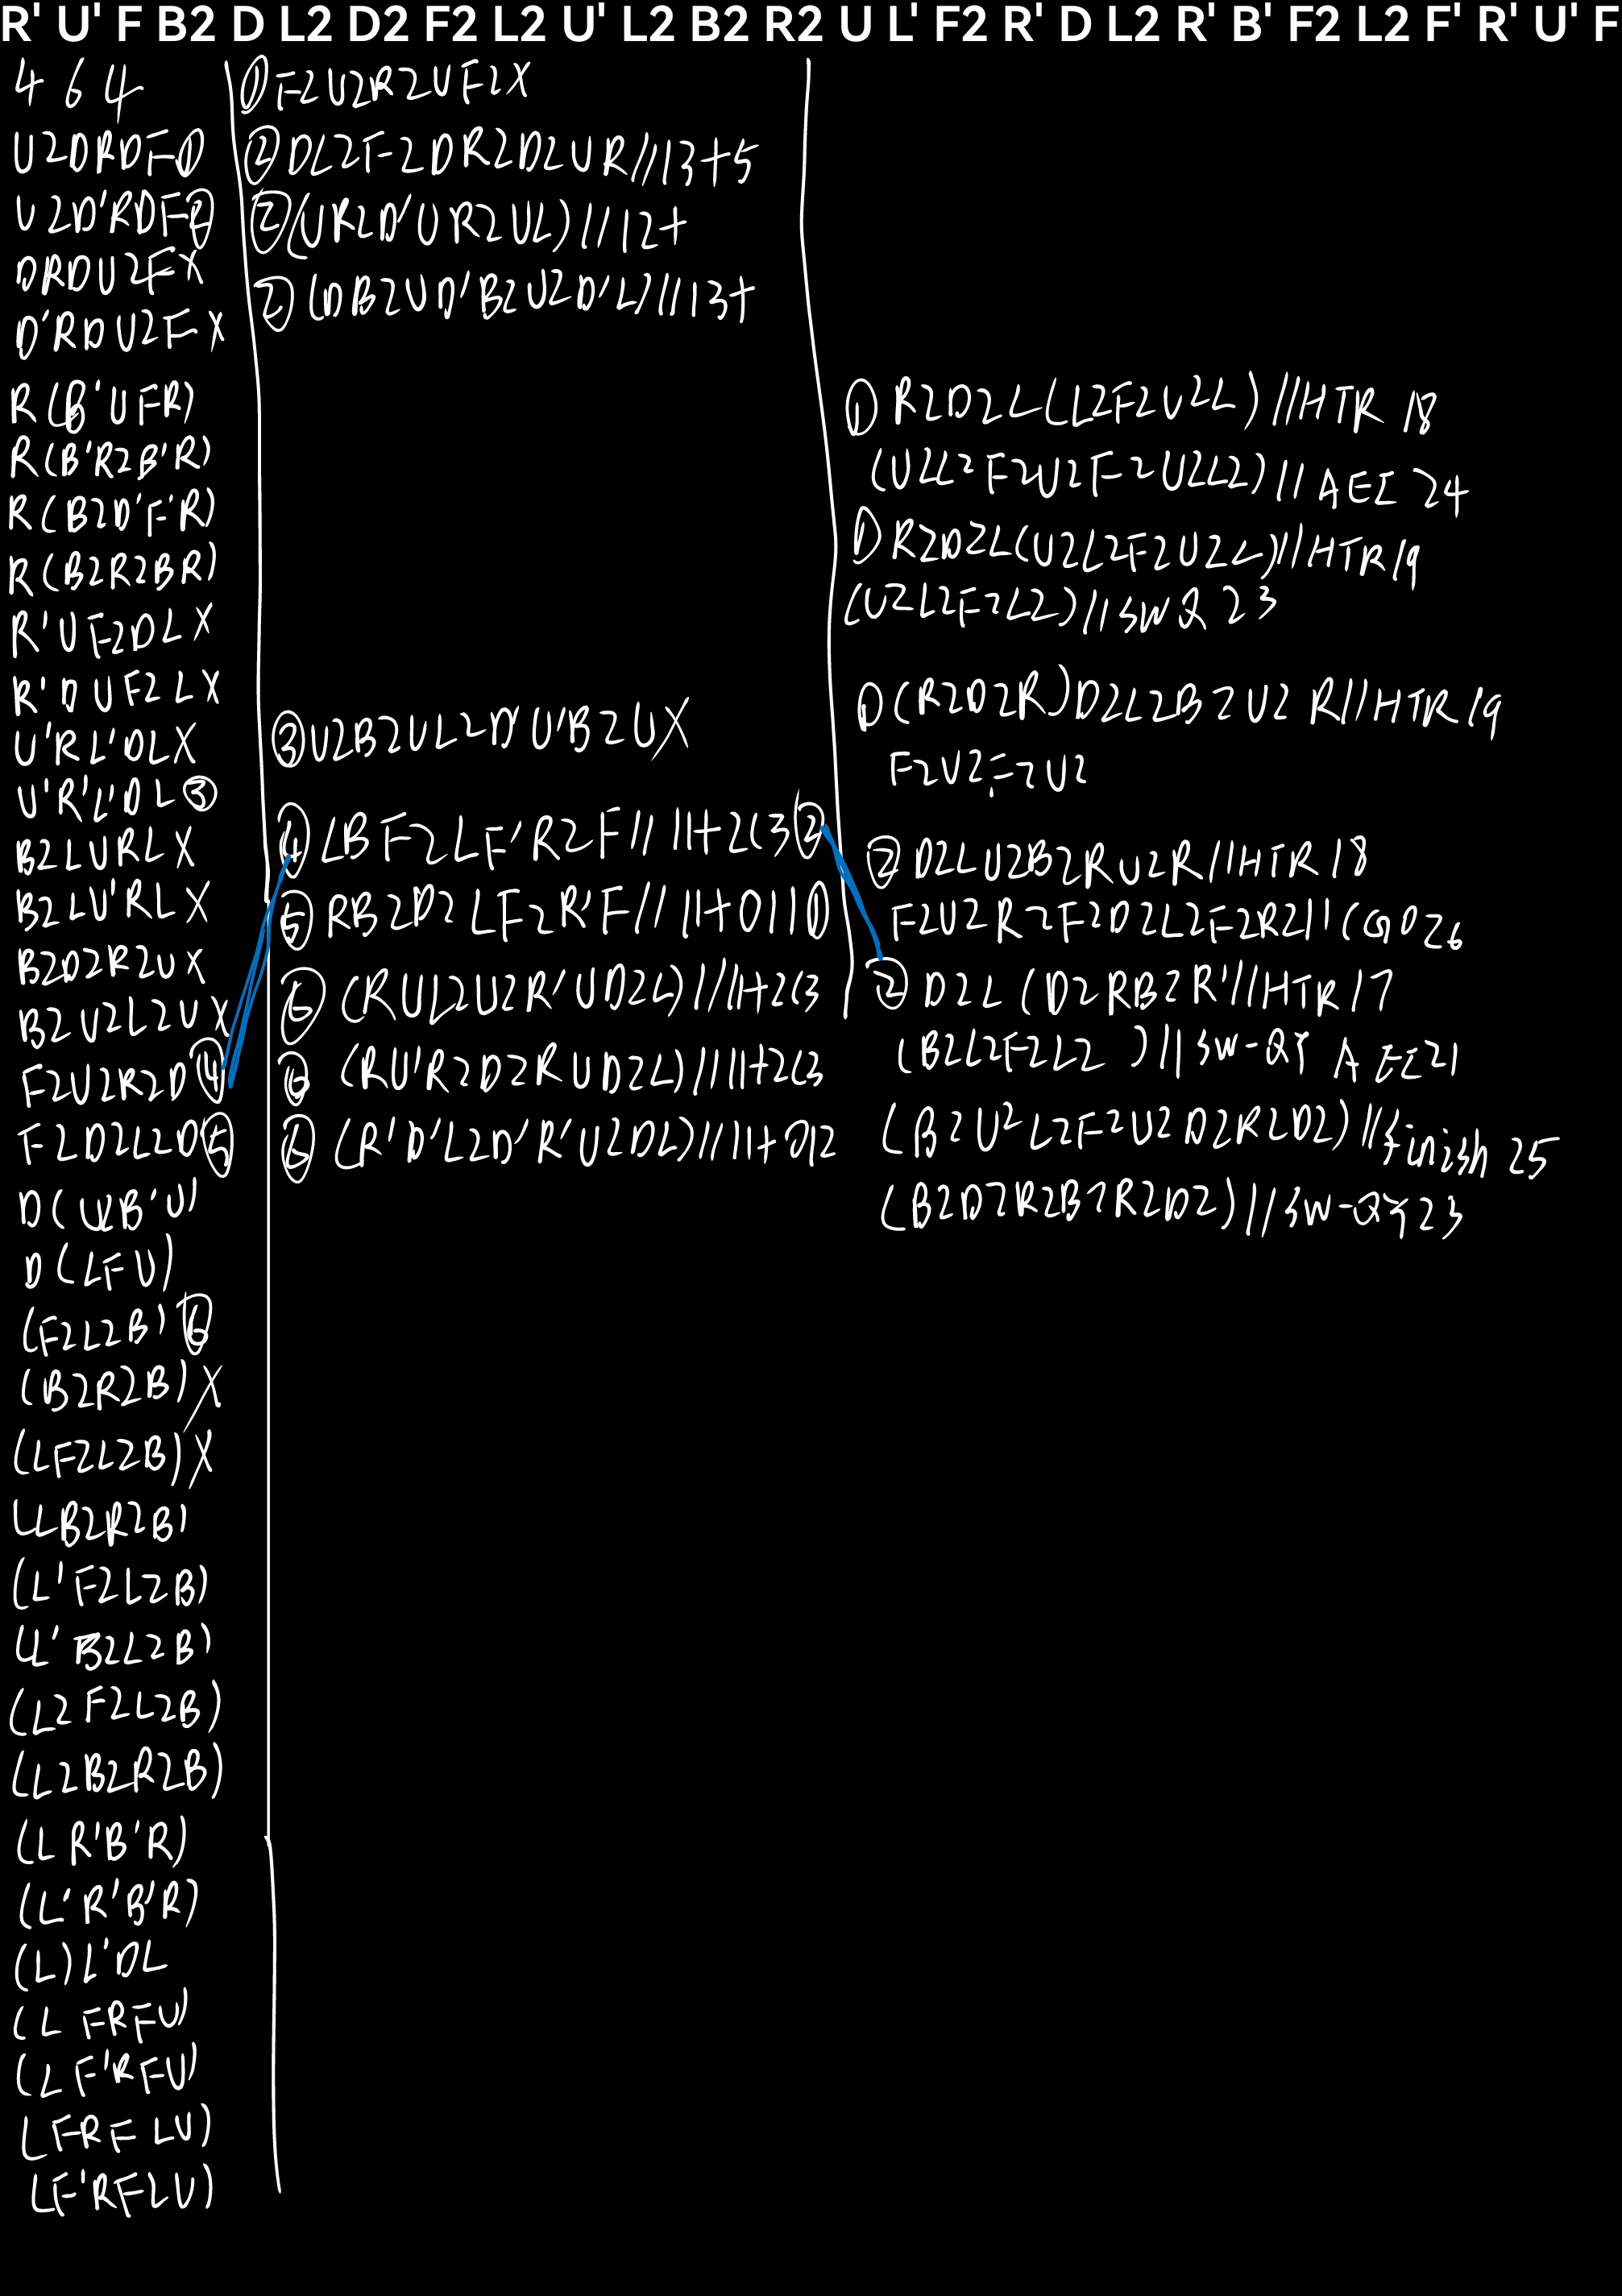 R' U' F B2 D L2 D2 F2 L2 U' L2 B2 R2 U L' F2 R' D L2 R' B' F2 L2 F' R' U' F
4 6 4
U2DRDF①
U2D'RDF②
DRDU2FX
D'RDU2FX
R(B'UFR)
R(B'R2B'R)
R(B2D'F'R)
R(B2R2BR)
R'UF2DLX
R'DUF2LX
U'RL'DLX
U'R'L'DL③
B2LURLX
B2LU'RLX
B2D2R2UX
B2U2L2UX
F2U2R2D④
F2D2L2D⑤
D(U2B'U)
D(LFU)
(F2L2B)⑥
(B2R2B)X
(LF2L2B)X
(LB2R2B)
(L'F2L2B)
(L'B2L2B)
(L2F2L2B)
(L2B2R2B)
(LR'B'R)
(L'R'B'R)
(L)L'DL
(LFRFU)
(LF'RFU)
(FRFLU)
LF'RFLU)
①F2U2R2UF2X
②DL2F2DR2D2UR//13+5
②(UR2D'UR2UL)//12+
②(DB2UD'B2U2D'L)//13+
③U2B2UL2D'U'B2UX
④LBF2LF'R2F//11+2C3②
⑤RB2D2LF2R'F//11+011①
⑥(RUL2U2R'UD2L)//11+2C3
⑥(RU'R2D2RUD2L)//11+2C3
⑥(R'D'L2D'R'U2DL)//11+012
①R2D2L(L2F2U2L)//HTR 18
(U2L2F2U2F2U2L2)//AEE 24
①R2D2L(U2L2F2U2L)//HTR19
(U2L2F2L2)//SWQ 23
①(R2D2R)D2L2B2U2R//HTR 19
F2U2F2U2
②D2LU2B2RU2R//HTR18
F2U2R2F2D2L2F2R2//CGO26
②D2L(D2RB2R'//HTR17
(B2L2F2L2)//SW-QY AEE21
(B2U2L2F2U2D2R2D2)//finish 25
(B2D2R2B2R2D2)//SW-QY23